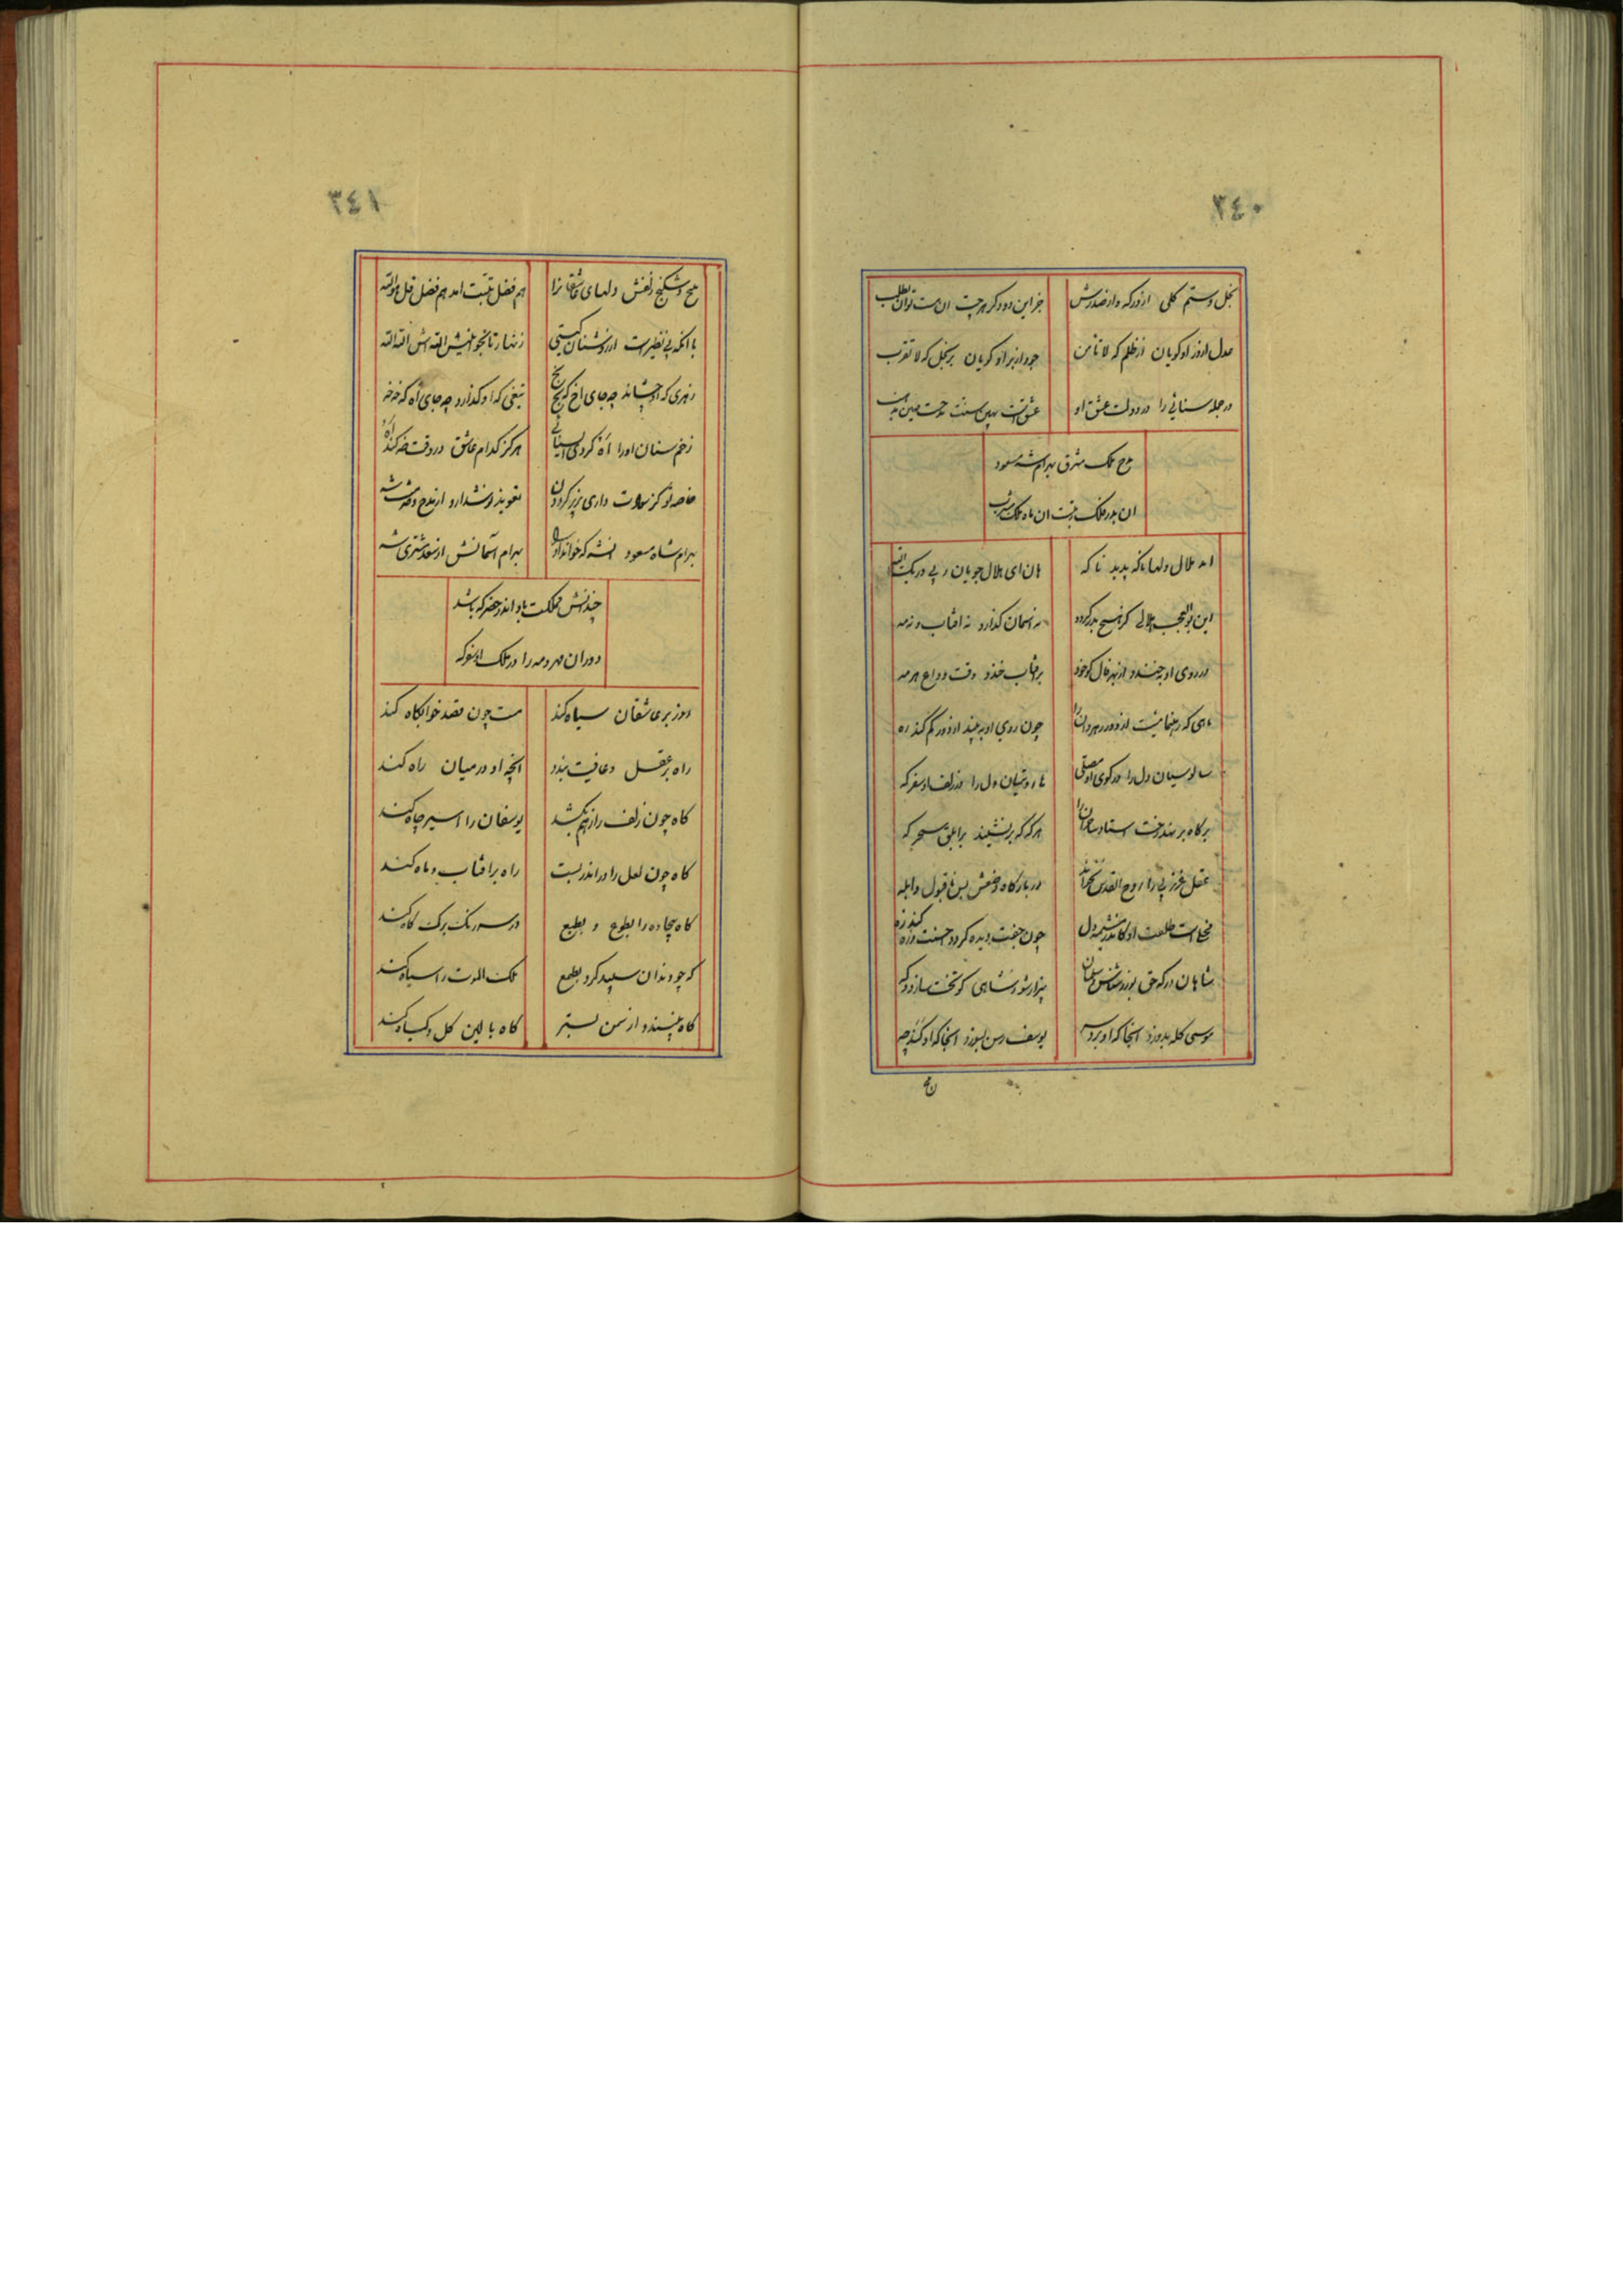 ٢٤٠
بخل و ستم کلی از درکه و از صدرش
جز این دو دکر هرچت ان هست توان طلب
عدل از در او کویان از ظلم که لا تامن
جود از بر او کویان بر بخل که لا تقرب
در جمله سنائی را در دولت عشق او
مدح ملک مشرق بهرامشه مسعود
ان بدر فلک رتبت ان ماه ملک مشرب
امد هلال دلها ناکه پدید ناکه
هان ای هلال جویان ربی و ربک الله
این بوالعجب هلالی کز هیچ بدر کردد
نه اسمان کذارد نه افتاب و نه مه
در روی او نخندد از بهر فال کو خود
بر افتاب خندد وقت وداع هر مه
ماهی که رهنما نیست از دور رهروان را
چون روی او به بیند از دور کم کند ره
سالوسیان دل را در کوی او مصلی
هاروتیان دل را در زلف او سفرکه
بر کاه بر نهد رخت استاد ساحران را
هرکه که برنشیند بر ابلق سحرکه
عقل غرزی را روح القدس نخواند
در بارکاه وضعش بس ناقبول و ابله
فحل است طلعت او کاندر مشیمه دل
چون جفت دیده کردد حسنت و زه کند زه
شاهان درکه حق بوزر منش سلمان
بیزار شو ز شاهی کو تخت سازد و که
موسی کله بدوزد انجا که او برد سر
یوسف رسن بسوزد انجا که او کند چه
٢٤١
پیچ و شکنج زلفش دلهای عاشقانرا
هم فضل تبت امد هم فضل قل هو الله
با انکه بی نظیرست از روشنان کیتی
زنهار تا نجوئیش الله اش الله الله
زهری که او چشاند چه جای اخ که بخ بخ
تیغی که او کذارد چه جای اه که خه خه
زخم سنان او را اه کردی ای سنائی
هرکز کدام عاشق در وقت خه کند اه
خاصه تو کز سعادت داری بزیر کردون
تعویذ او نشد از مدح و محمدت شه
بهرام شاه مسعود انشه که خواند او را
بهرام اسمانش از سعد مشتری شه
چندانش مملکت باد اندر حضر که باشد
دوران مهر و مه را در ملک او سفرکه
روز بر عاشقان سیاه کند
مست چون قصد خوابکاه کند
راه بر عقل و عافیت بندد
انچه او در میان راه کند
کاه چون زلف را ز هم بکشد
یوسفان را اسیر چاه کند
کاه چون لعل را در اندر بست
راه بر افتاب و ماه کند
کاه بیجاده را بطوع و بطبع
در سر رنک برک کاه کند
که چو دندان سپید کرد بطمع
ملک الموت را سیاه کند
کاه بپسندد از سمن بستر
کاه بالین کل و کیاه کند